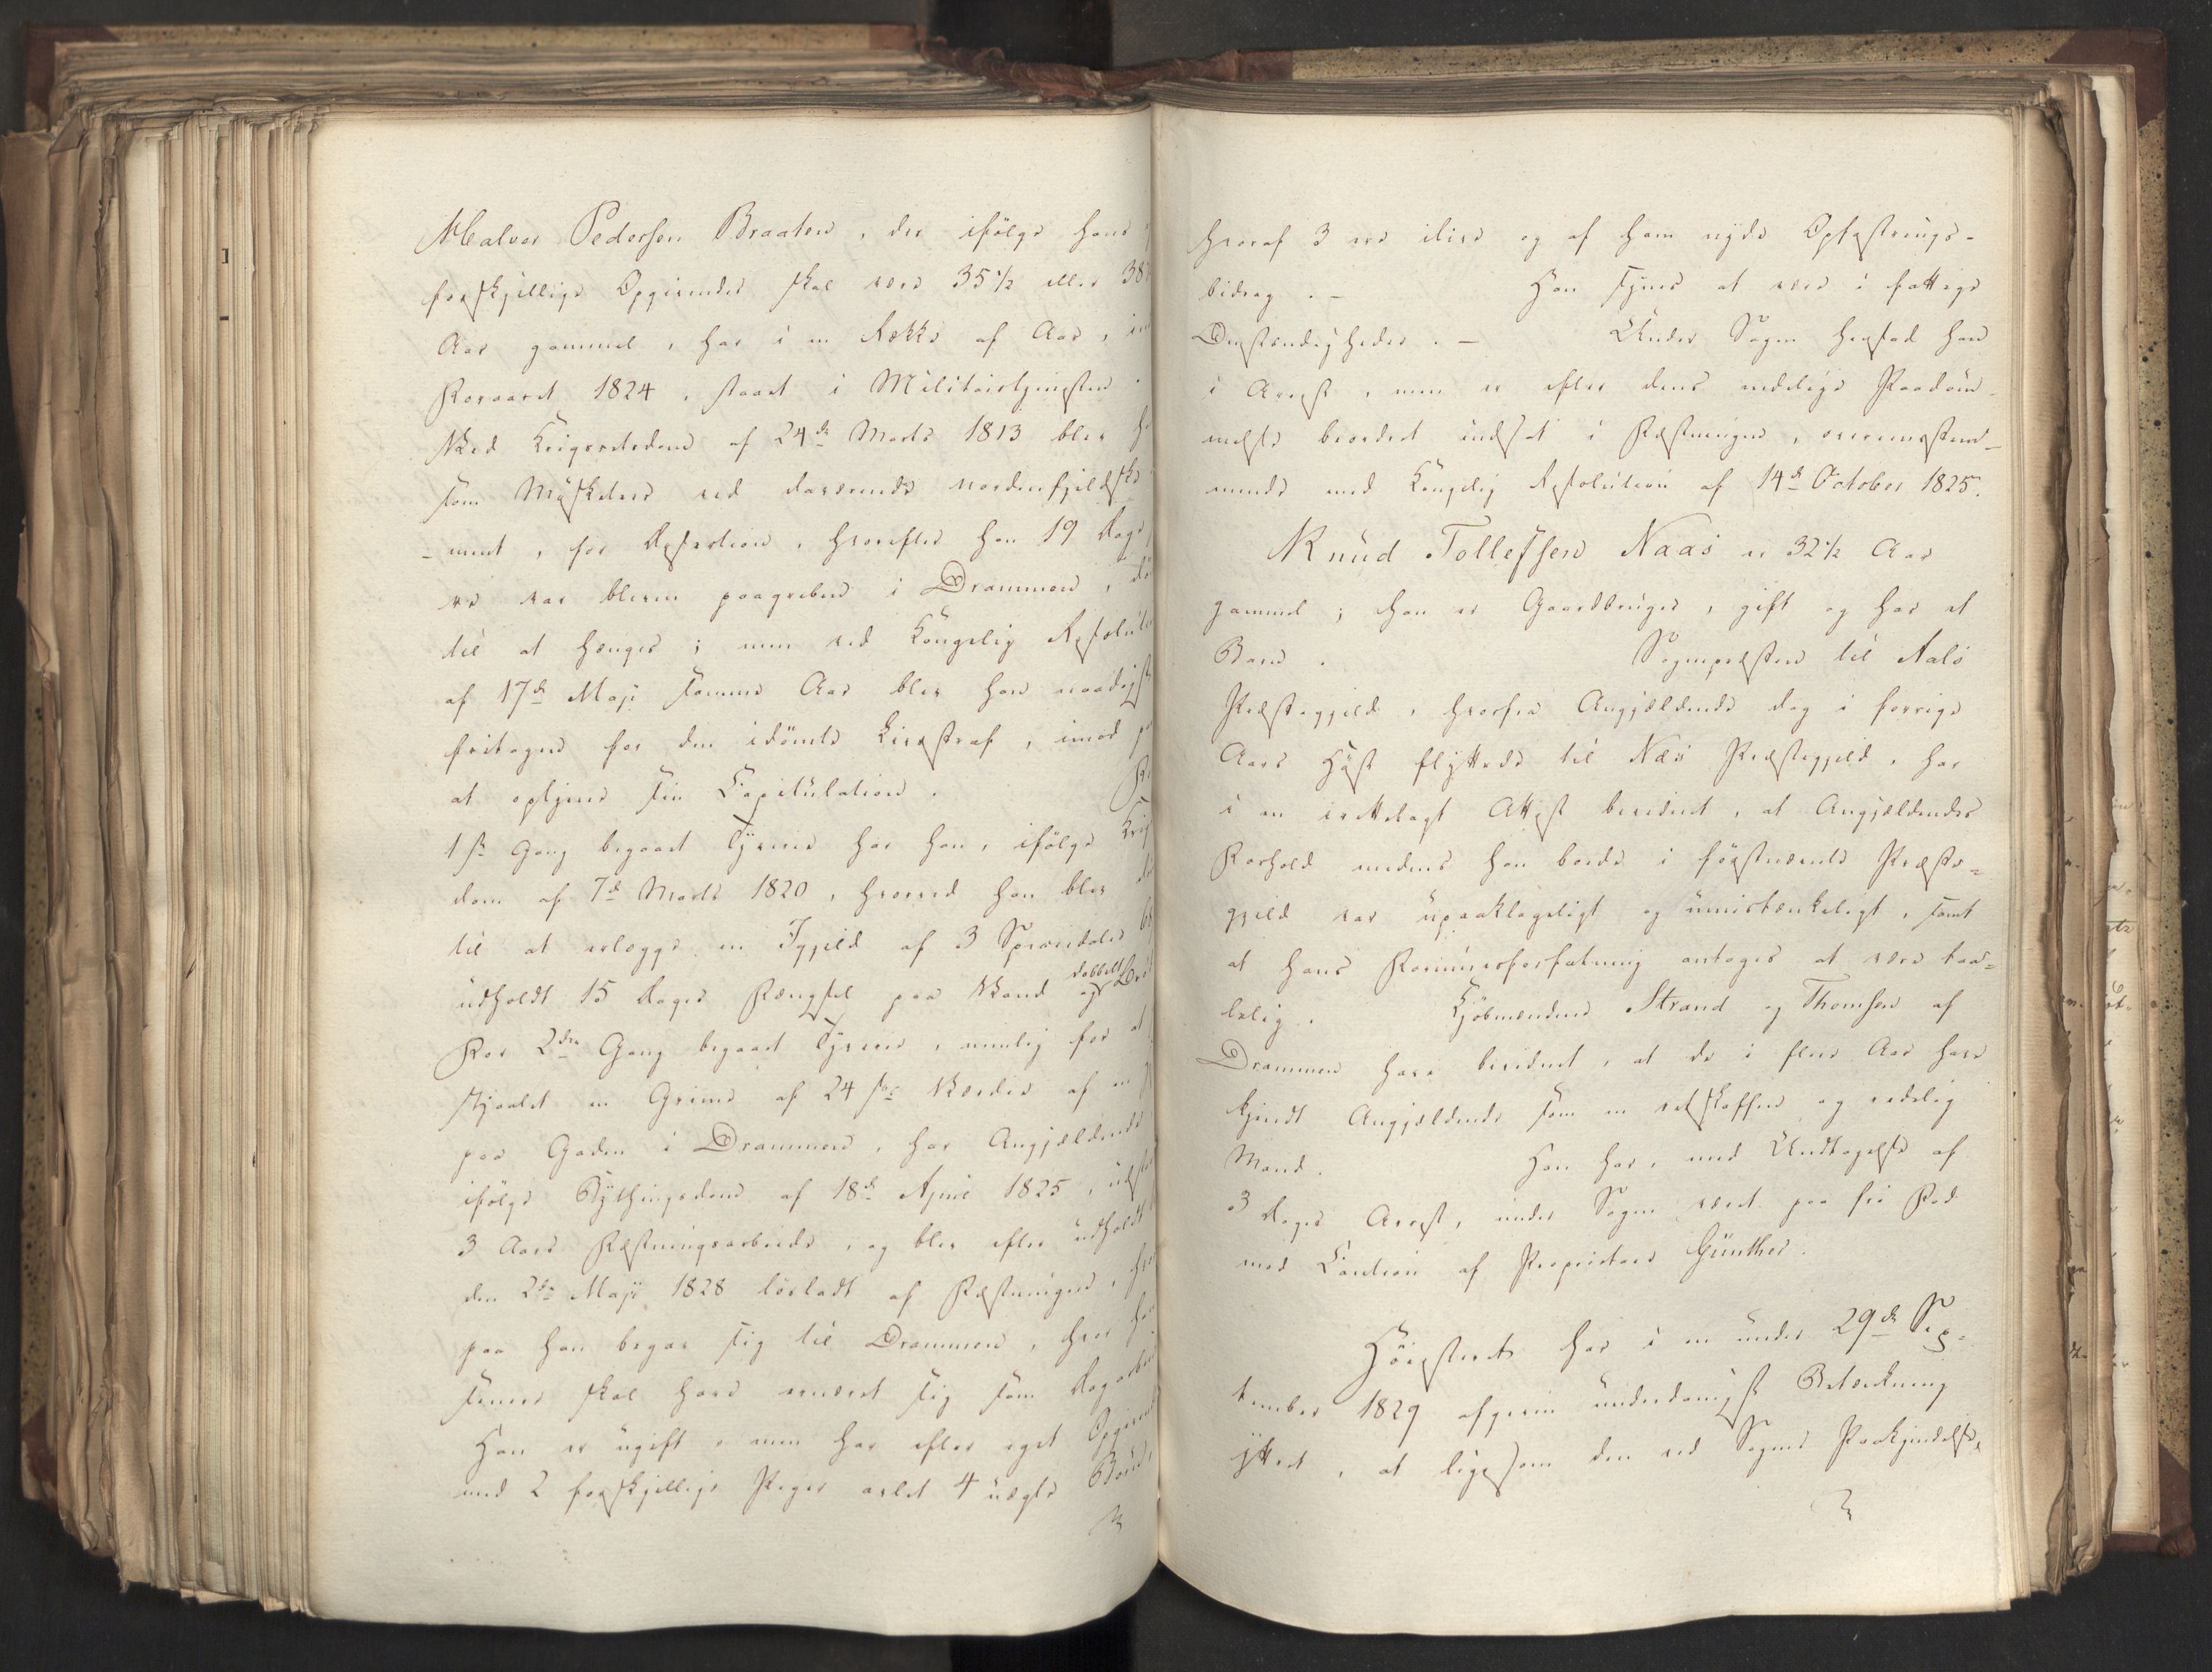 Halvor Pedersen Braaten, der ifølge hans
forskjellige Opgivender skal være 35 1/2 eller 38
Aar gammel, har i en Række af Aar, in
Foraaret 1824, staaet i Militairtjenesten.
Ved Krigsretsdom af 24de Marts 1813 blev h
som Musketeer ved daværende nordenfjeldske
-ment, for Desertion, hvorefter han 19 Dage
var bleven paagreben i Drammen, dö
til at hænges; men ved Kongelig Resolution
af 17de Maji samme Aar blev han naadigst
fritagen for den idömte Livsstraf, imod
at optjene sin Capitulation. Fo
1ste Gang begaaet Tyverie har han, ifölge Krigs
dom af 7de Marts 1820, hvorved han blev dö
til at erlægge en Igjæld af 3 Speciedaler
udholdt 15 Dages Fængsel paa Vand og dobbelt Bröd
For 2den Gang begaaet Tyverie, nemlig for at
stjaalet en Grime af 24 s Værdie af en
paa Gaden i Drammen, har Angjældende
ifölge Bythingsdom af 18de April 1825, udst
3 Aars Fæstningsarbeide, og blev efter udholdt
den 2den Maji 1828 lösladt af Fæstningen, hvor
paa han begav sig til Drammen, hvor han
senere skal have ernæret sig som Dagarbei
Han er ugift, men har efter eget Opgivend
med 2 forskjellige Piger avlet 4 uægte Börn,
hvoraf 3 ere ilive og af ham nyde Opfostrings-
bidrag. - Han synes at være i fattige
Omstændigheder. - Under Sagen hensad han
i Arrest, men er efter dens endelige Paadöm-
melse beordret indsat i Fæstningen, overeensstem-
mende med Kongelig Resolution af 14de October 1825.
Knud Tollefsen Naas er 32 1/2 Aar
gammel; han er Gaardbruger, gift og har et
Barn. Sognepræsten til Aals
Præstegjeld, hvorfra Angjældende dog i forrige
Aars Höst flyttede til Næs Præstegjeld, har
i en irettelagt Attest bevidnet, at Angjældendes
Forhold medens han boede i förstnævnte Præste-
gjeld var upaaklageligt og umistænkeligt, samt
at hans Formuesforfatning antages at være taa-
lelig. Kjöbmændene Strand og Thomsen af
Drammen have bevidnet, at de i flere Aar have
kjendt Angjældende som en retskaffen og redelig
Mand. Han har, med Undtagelse af
3 Dages Arrest, under Sagen været paa fri Fod
mod Caution af Proprietair Günther.
Höiesteret har i en under 29de Sep-
tember 1829 afgiven underdanigst Betænkning
yttret, at ligesom den ved Sagens Paakjendelse,